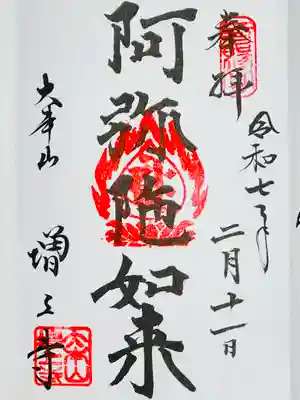 奉拝
令和七年
二月十一日
阿弥陀如来
大本山
増上寺
大本山